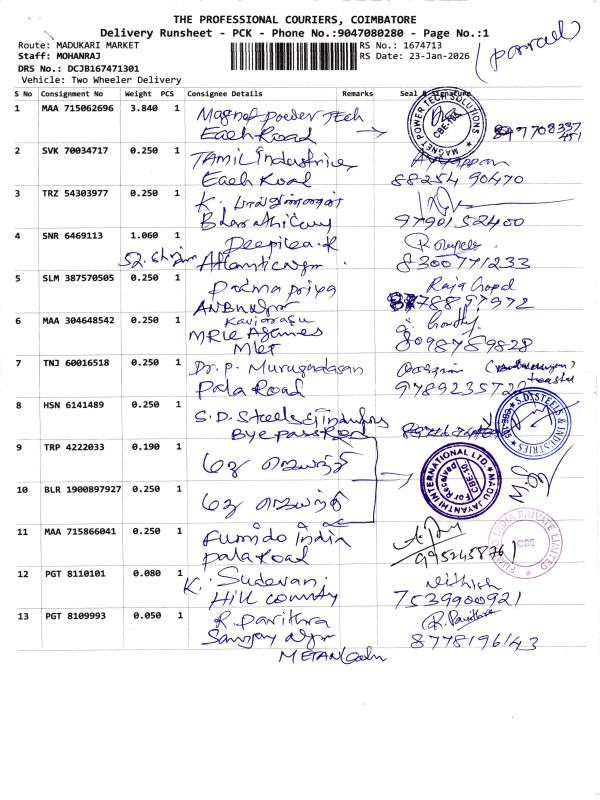 THE PROFESSIONAL COURIERS, COIMBATORE
Delivery Runsheet - PCK - Phone No.:9047080280 - Page No.:1
Route: MADUKARI MARKET
RS No.: 1674713
Staff: MOHANRAJ
RS Date: 23-Jan-2026
DRS No.: DCJB167471301
Vehicle: Two Wheeler Delivery
S No Consignment No Weight PCS Consignee Details Remarks Seal & Signature
1 MAA 715062696 3.840 1
Each Road
MAGNET POWER TECH SOLUTIONS
2 SVK 70034717 0.250 1 Tamil Industries
Each Road 88254 90470
3 TRZ 54303977 0.250 1
9790152400
4 SNR 6469113 1.060 1 Deepika.R
8300771233
5 SLM 387570505 0.250 1 Padma priya Raja Gopal
6 MAA 304648542 0.250 1 Kaviarasu
8098789828
7 TNJ 60016518 0.250 1 Dr. P. Murugadasan
Pala Road
8 HSN 6141489 0.250 1 S.D. Steels & Industries
Bye pass Road
S.D. STEELS & INDUSTRIES
9 TRP 4222033 0.190 1 மது ஜெயந்தி
MADU JAYANTHI INTERNATIONAL LTD.
For Received
CBE-10
10 BLR 1900897927 0.250 1 மது ஜெயந்தி
11 MAA 715866041 0.250 1 Fumido India
Pala Road 9952458761
INDIA PRIVATE LIMITED
CBE
12 PGT 8110101 0.080 1 K. Sudevan Nithish
Hill County 7539900921
13 PGT 8109993 0.050 1 R. Pavithra R. Pavithra
8778196143